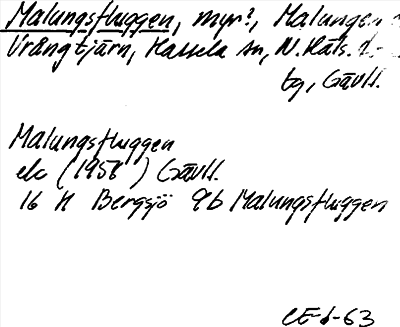 Malungsfluggen, myr?, Malungen
Vrångtjärn, Hassela sn, N. Häls.
bg, Gävll.
Malungsfluggen
ek (1956) Gävll.
16 H Bergsjö 9b Malungsfluggen
CE-d-63